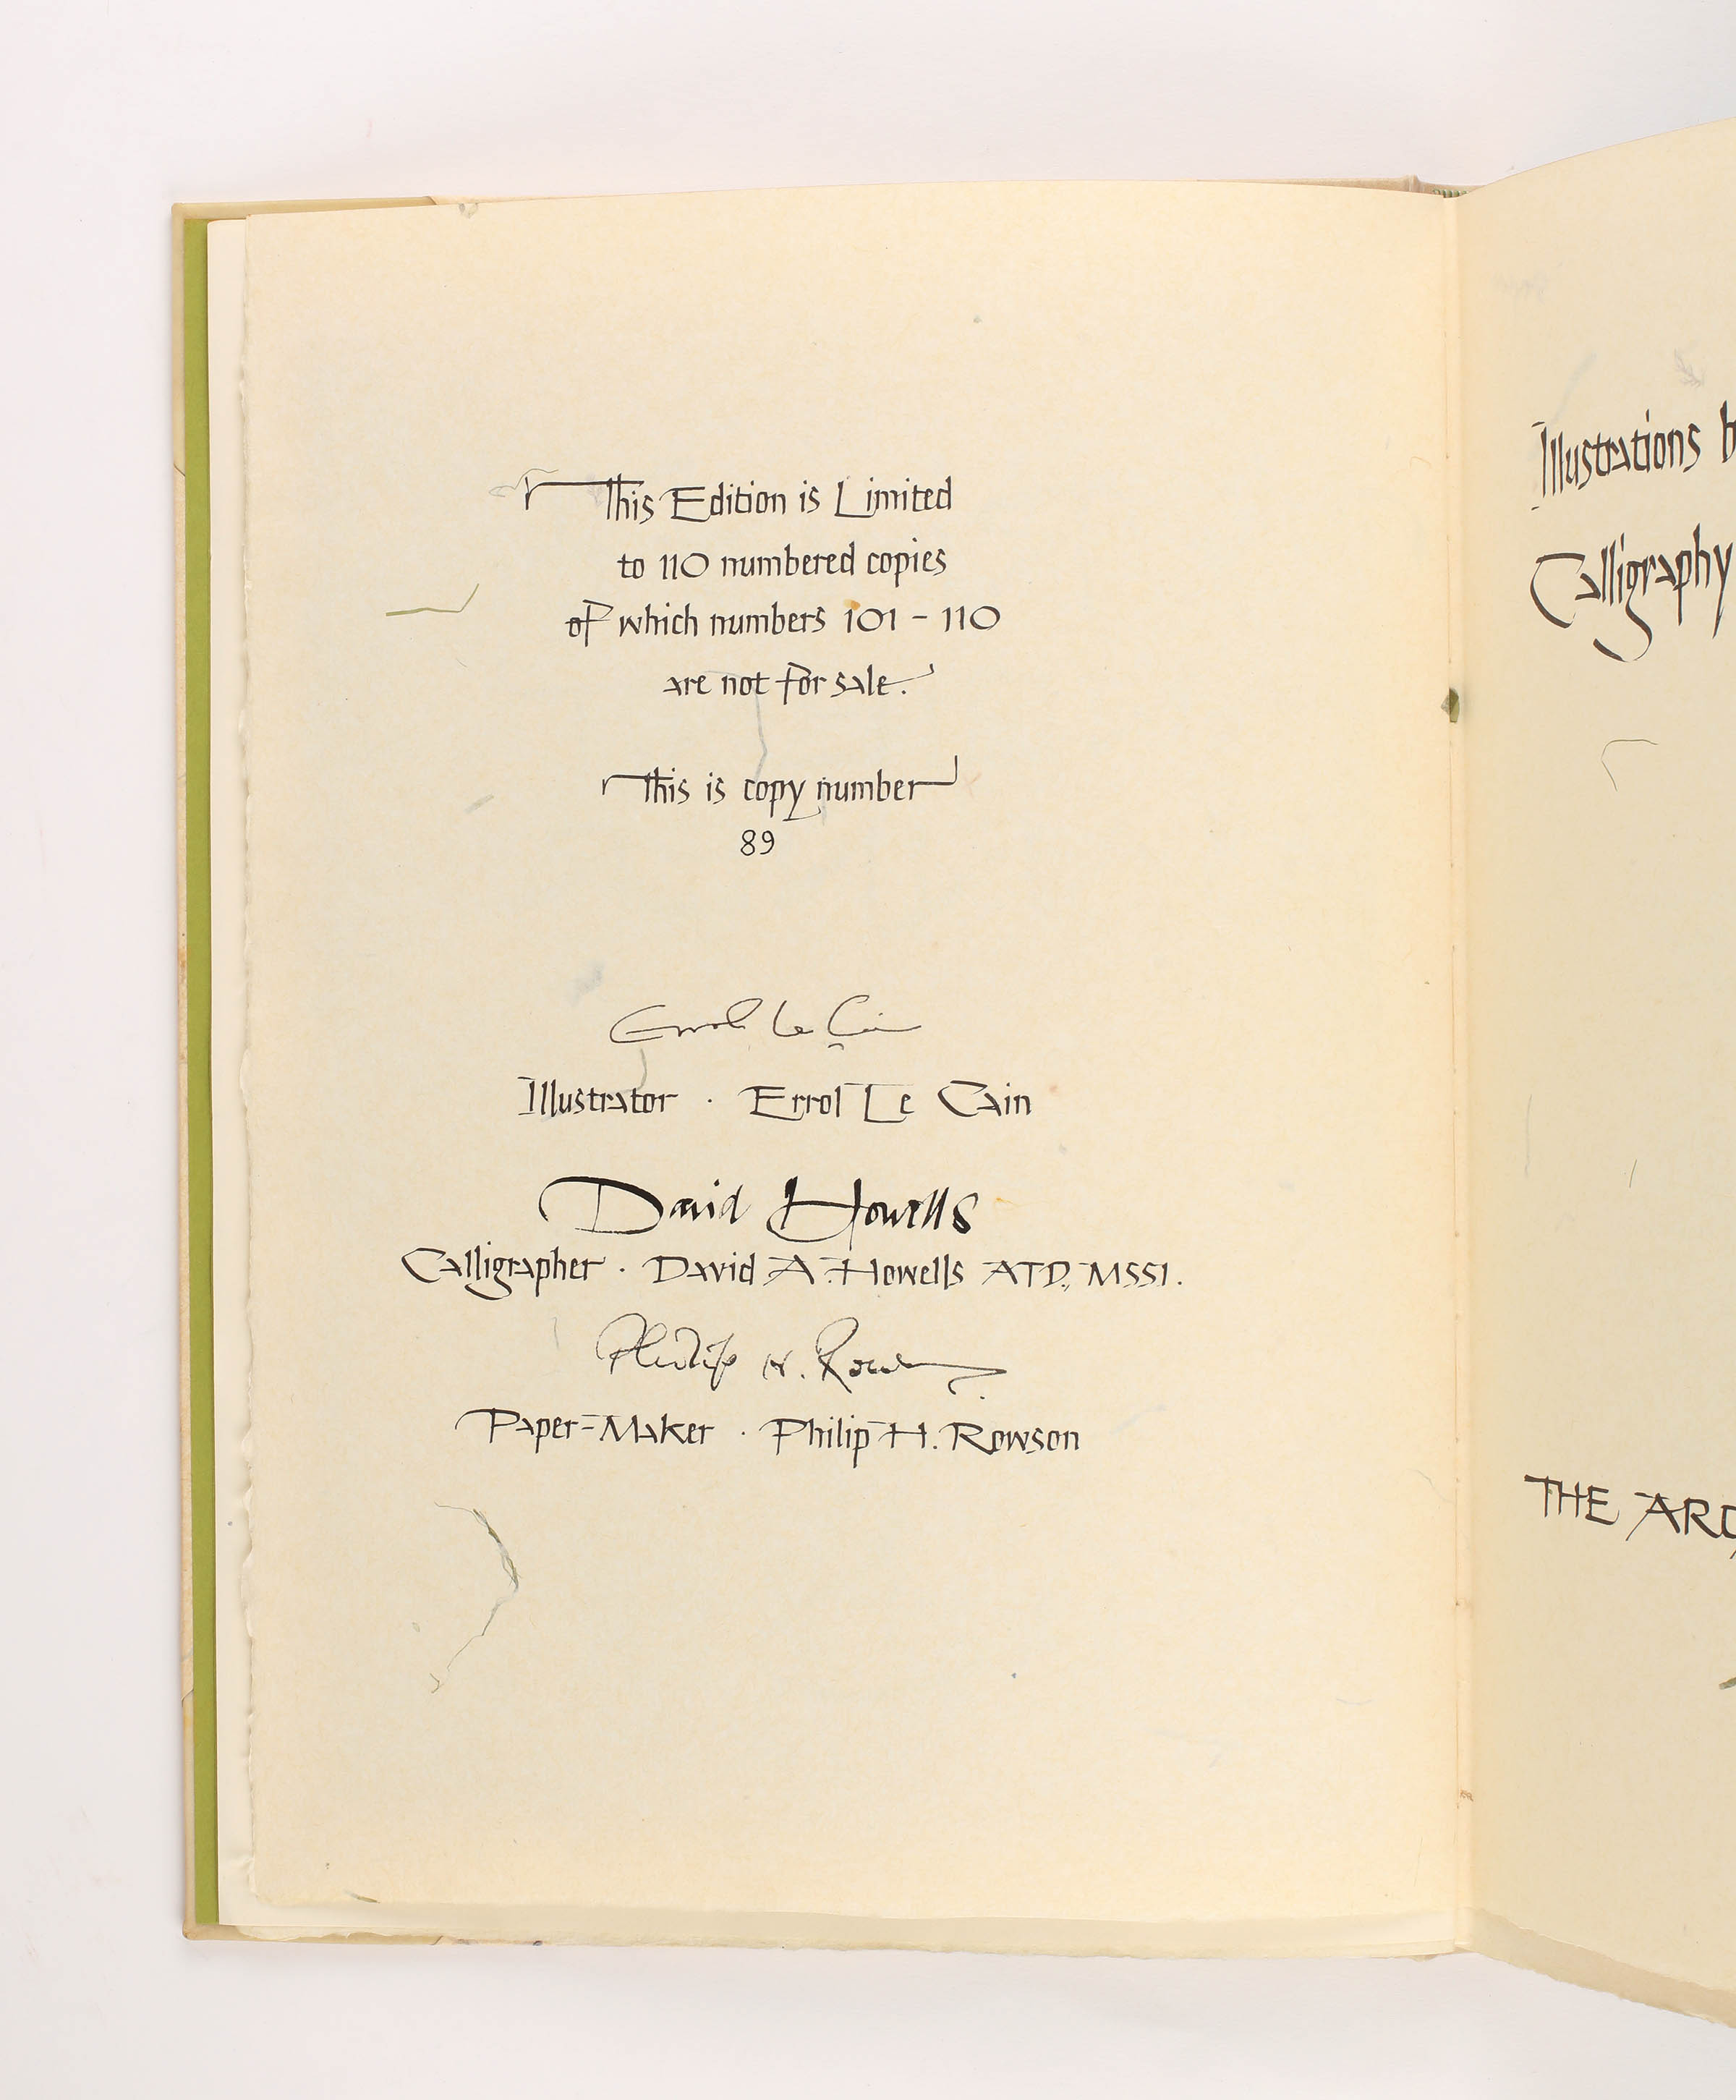 This Edition is Limited
to 110 numbered copies
of which numbers 101 – 110
are not for sale.
This is copy number
89
Errol Le Cain
Illustrator · Errol Le Cain
David Howells
Calligrapher · David A. Howells ATD., MSSI.
Philip H. Rowson
Paper-Maker · Philip H. Rowson
Illustrations b
Calligraphy
THE ARC